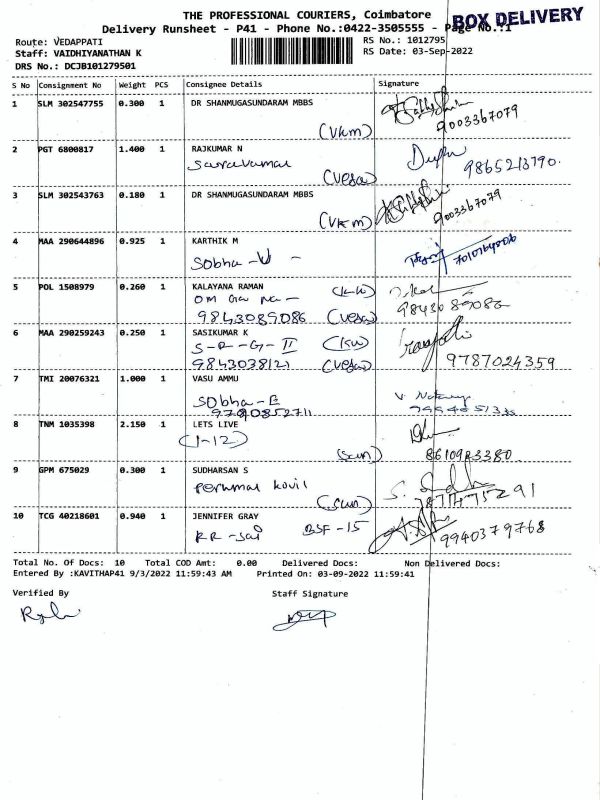 THE PROFESSIONAL COURIERS, Coimbatore
Delivery Runsheet - P41 - Phone No.:0422-3505555 - Page No.:1
BOX DELIVERY
Route: VEDAPPATI
Staff: VAIDHIYANATHAN K
DRS No.: DCJB101279501
RS No.: 1012795
RS Date: 03-Sep-2022
S No Consignment No Weight PCS Consignee Details Signature
1 SLM 302547755 0.300 1 DR SHANMUGASUNDARAM MBBS
(Vkm) 9003367079
2 PGT 6800817 1.400 1 RAJKUMAR N
(Vesa) 9865213790.
3 SLM 302543763 0.180 1 DR SHANMUGASUNDARAM MBBS
(VKm) 9003367079
4 MAA 290644896 0.925 1 KARTHIK M
Sobha - V -
5 POL 1508979 0.260 1 KALAYANA RAMAN
9843089086 (Vesa) 9843089086
6 MAA 290259243 0.250 1 SASIKUMAR K
S-R-G-II (KW)
9843038121 (Vesa) 9787024359
7 TMI 20076321 1.000 1 VASU AMMU
Sobha-E
8 TNM 1035398 2.150 1 LETS LIVE
(1-12)
(Sun) 8610983380
9 GPM 675029 0.300 1 SUDHARSAN S
Perumal kovil
(Sun)
10 TCG 40218601 0.940 1 JENNIFER GRAY
RR-Sai BSF-15 9940379768
Total No. Of Docs: 10 Total COD Amt: 0.00 Delivered Docs: Non Delivered Docs:
Entered By :KAVITHAP41 9/3/2022 11:59:43 AM Printed On: 03-09-2022 11:59:41
Verified By Staff Signature